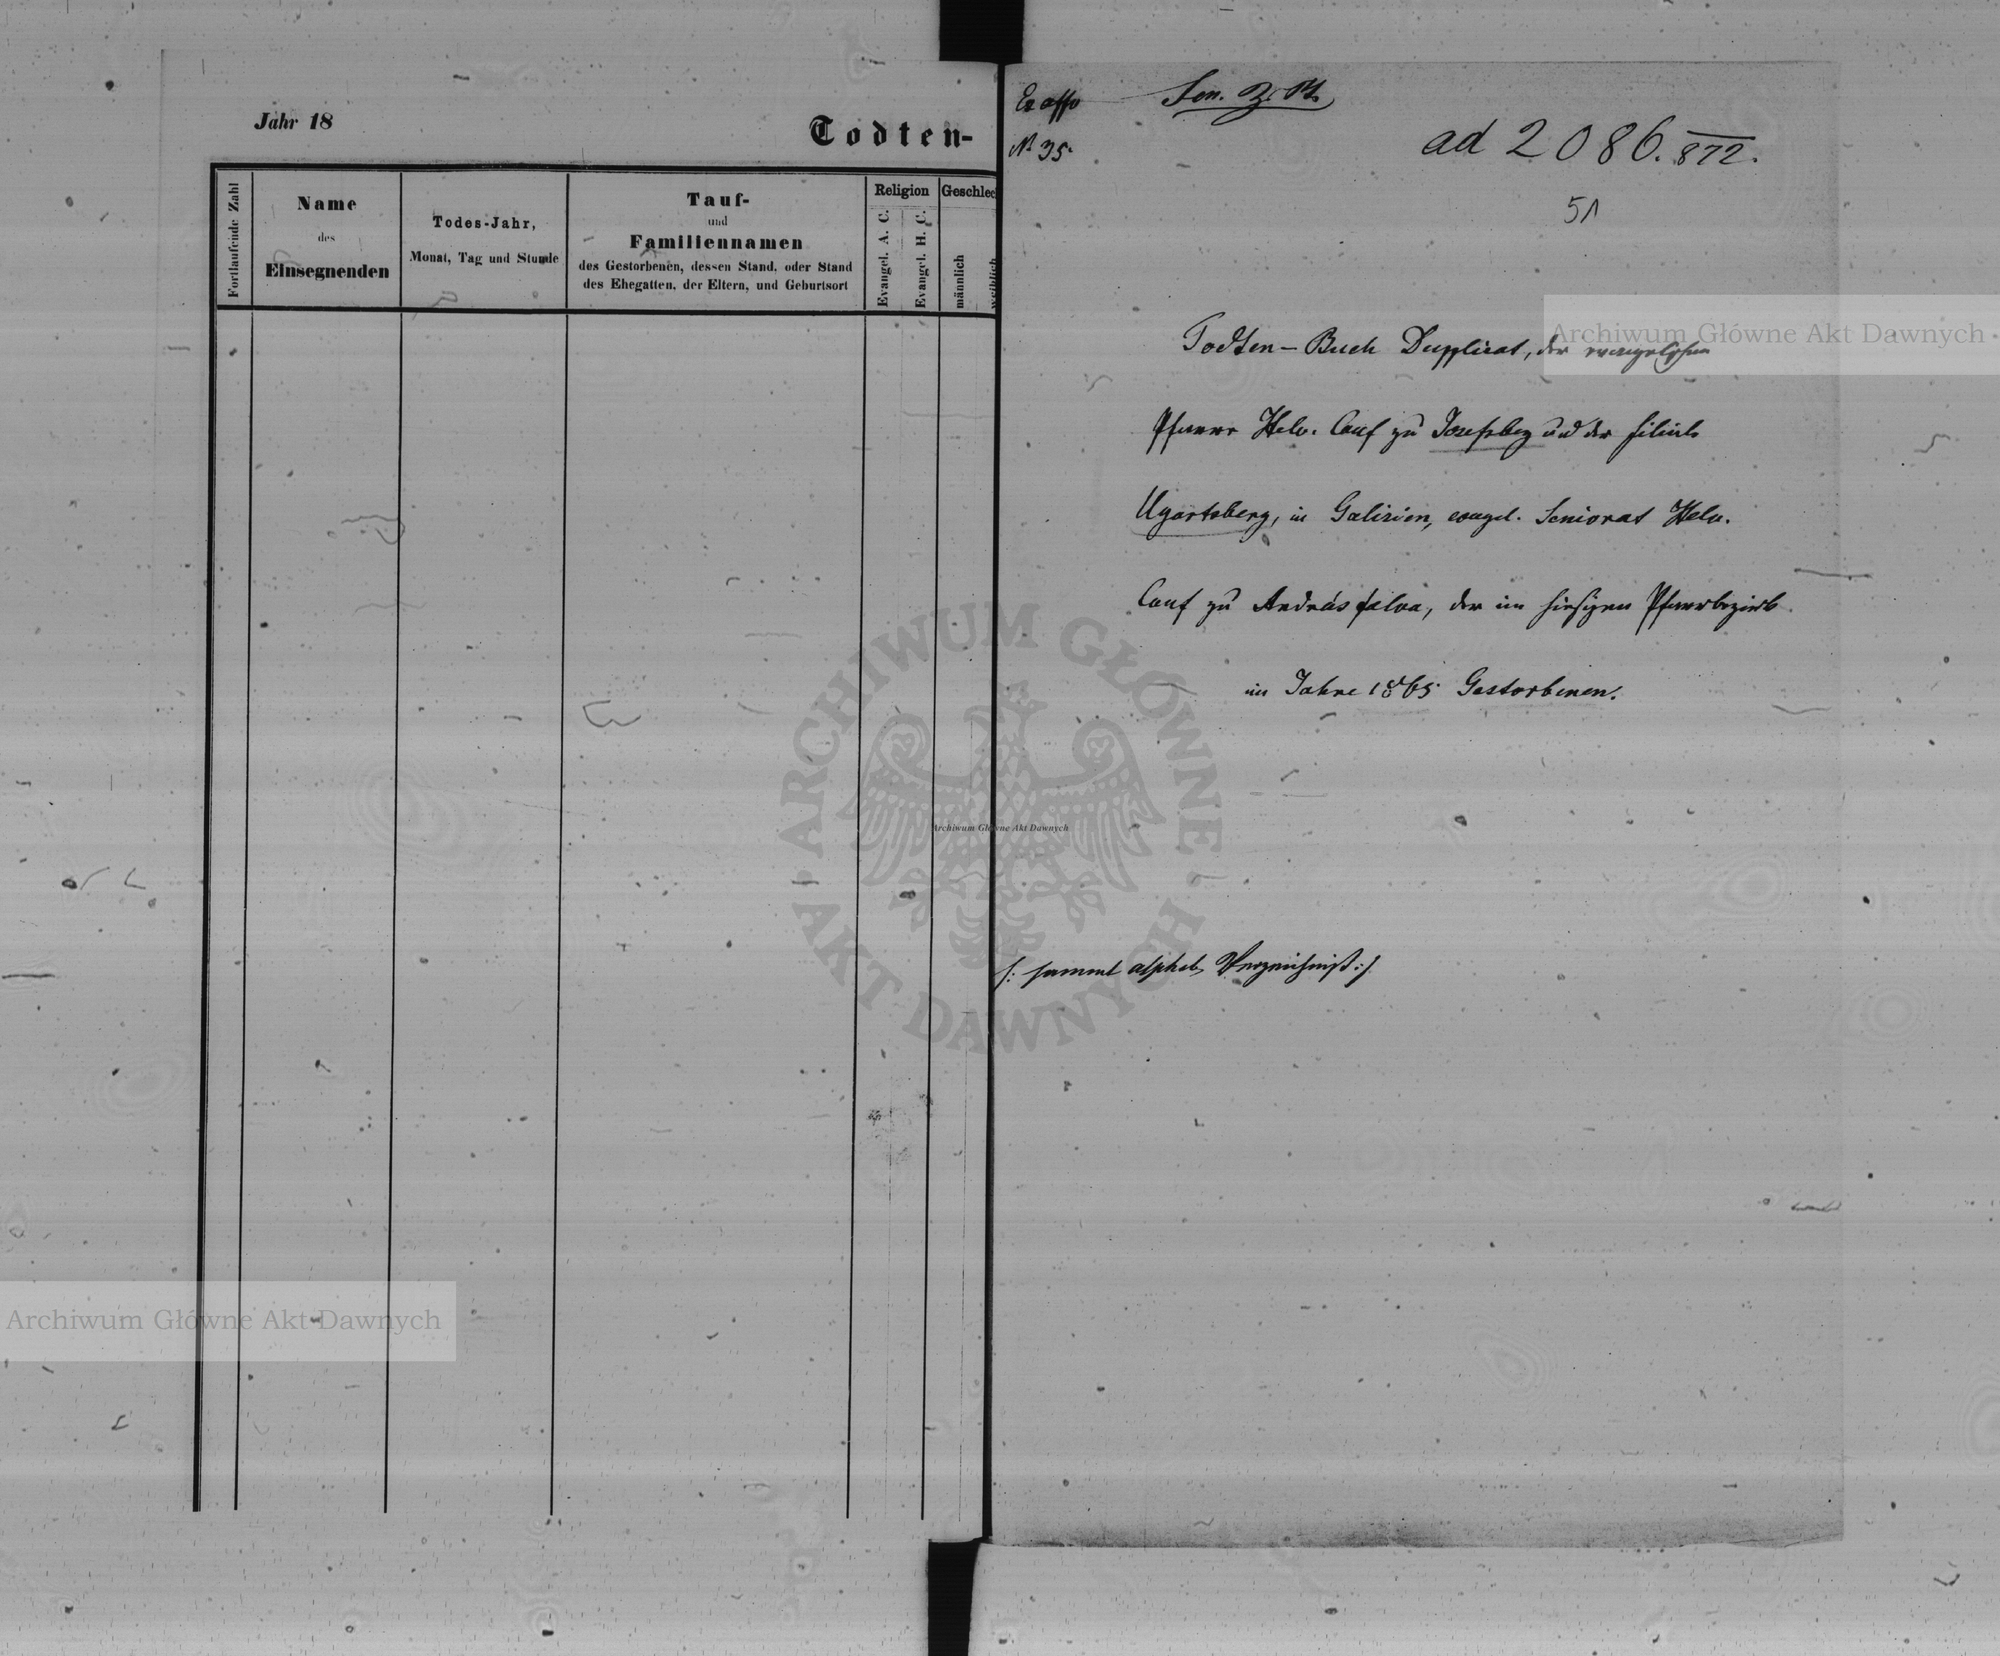 Jahr 18
Todten-
Fortlaufende Zahl
Name
des
Einsegnenden
Todes-Jahr,
Monat, Tag und Stunde
Tauf-
und
Familiennamen
des Gestorbenen, dessen Stand, oder Stand
des Ehegatten, der Eltern, und Geburtsort
Religion
Evangel. A. C.
Evangel. H. C.
Geschlec
männlich
weiblich
Ex offo
N 35.
Sen. Z.
ad 2086. 872.
51
Todten-Buch Duplicat, der evangelschen
Pfarre Helv. Conf zu Josefsberg und der Filiale
Ugartsberg, in Galizien, evagel. Seniorat Helv.
Conf zu Andrásfalva, der im hiesigen Pfarrbezirk
im Jahre 1865 Gestorbenen.
/: sammt alphab. Verzeichniß :/
Archiwum Główne Akt Dawnych
ARCHIWUM GŁÓWNE
AKT DAWNYCH
Archiwum Główne Akt Dawnych
Archiwum Główne Akt Dawnych